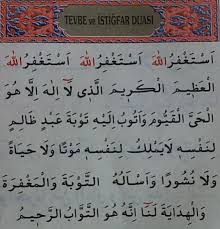 TEVBE ve İSTİĞFAR DUASI
اَسْتَغْفِرُ اللهَ اَسْتَغْفِرُ اللهَ اَسْتَغْفِرُ اللهَ
الْعَظِيمَ الْكَرِيمَ الَّذِي لَا اِلٰهَ اِلَّا هُوَ
الْحَيَّ الْقَيُّومَ وَاَتُوبُ اِلَيْهِ تَوْبَةَ عَبْدٍ ظَالِمٍ
لِنَفْسِهِ لَا يَمْلِكُ لِنَفْسِهِ مَوْتًا وَلَا حَيَاةً
وَلَا نُشُورًا وَاَسْاَلُهُ التَّوْبَةَ وَالْمَغْفِرَةَ
وَالْهِدَايَةَ لَنَا اِنَّهُ هُوَ التَّوَّابُ الرَّحِيمُ